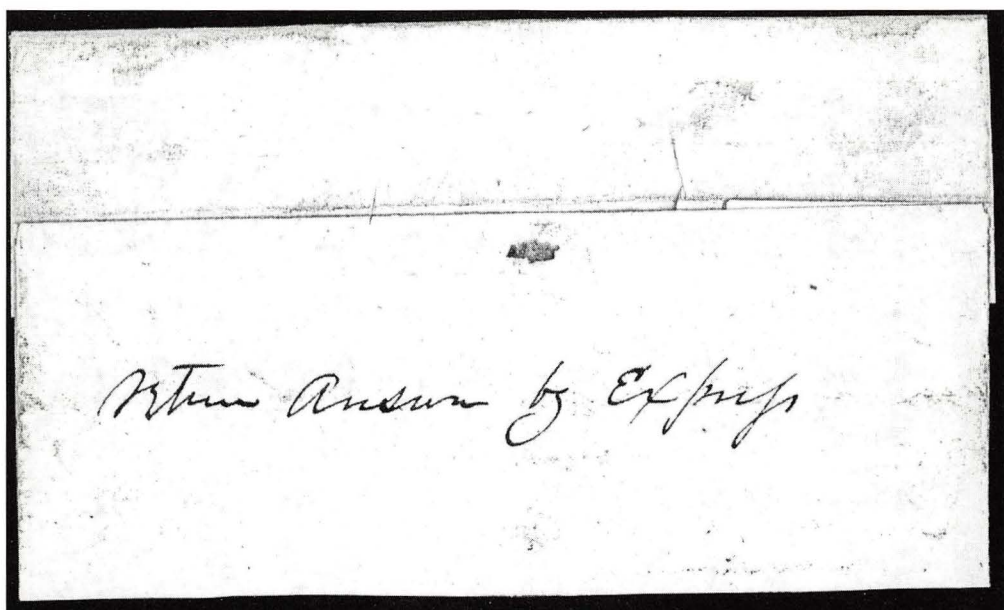 return Answer by Express